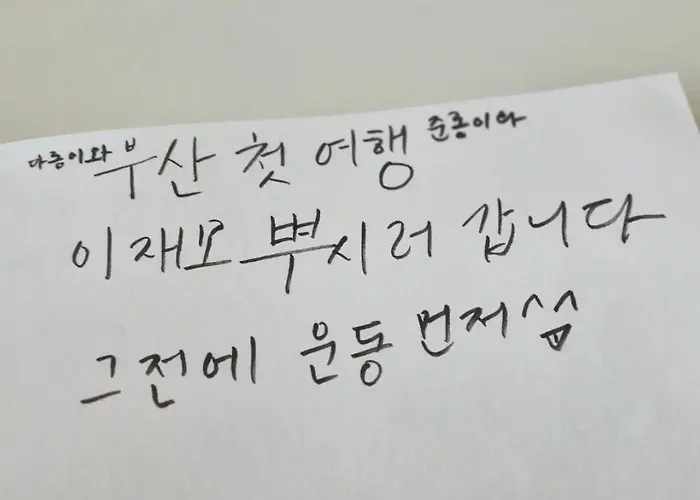 다롱이와 부산 첫 여행 준롱이와
이재모 뿌시러 갑니다
그전에 운동 먼저